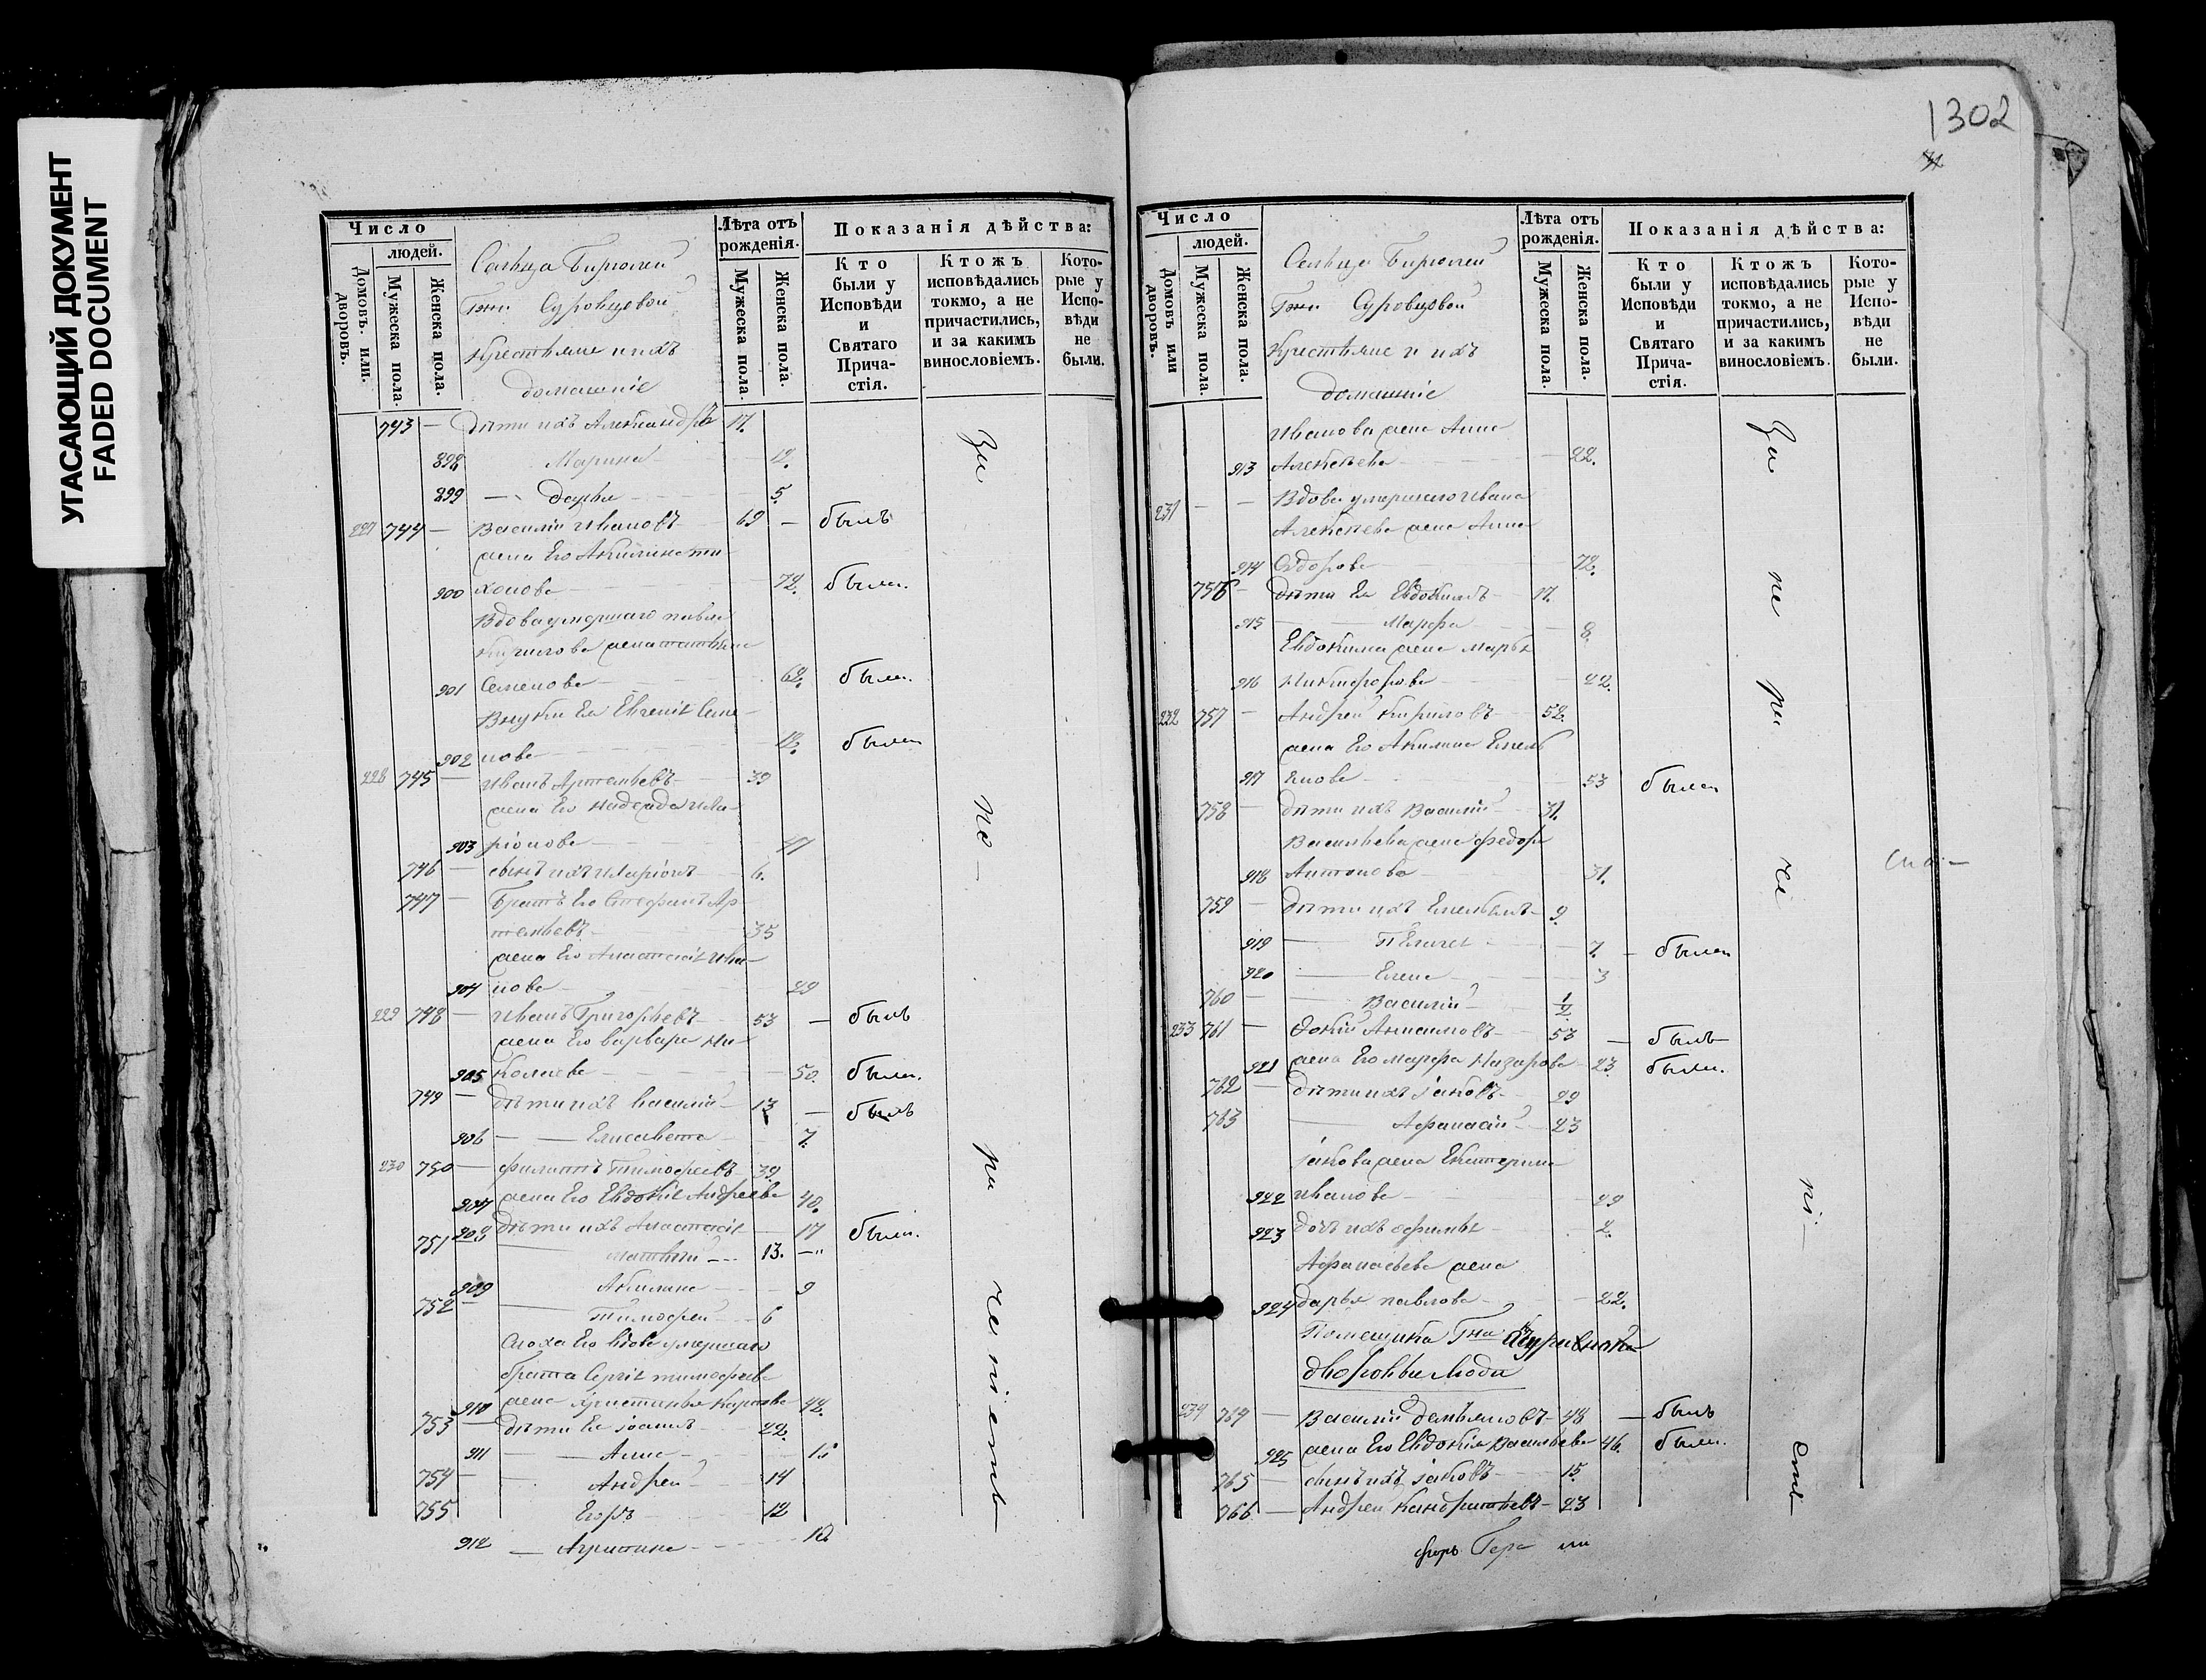 УГАСАЮЩИЙ ДОКУМЕНТ
FADED DOCUMENT
Число
людей.
Домовъ или дворовъ.
Мужеска пола.
Женска пола.
Сельца
Гжи Суровцовой
крестьяне и ихъ
домашніе
Лѣта отъ рожденія.
Мужеска пола.
Женска пола.
Показанія дѣйства:
Кто были у Исповѣди и Святаго Причастія.
Ктожъ исповѣдались токмо, а не причастились, и за какимъ винословіемъ.
Которые у Исповѣди не были.
743 — Дѣти ихъ Александръ 17.
898 Марина 12.
899 — Дарья 5.
227 744 — Василій Ивановъ 69 — былъ
жена Его Акилина Ти
900 хонова 72. была.
Вдова умершаго Павла
Кирилова жена Татьяна
901 Семенова 62. была.
Внука Ея Евгенія Семе
902 нова была
228 745 — Иванъ Артемьевъ 39
жена Его Надежда Ила
903 ріонова 47
746 — сынъ ихъ Иларіонъ 6.
747 — Братъ Его Стефанъ Ар
темьевъ 35
жена Его Анастасія Ива
904 нова 29
229 748 — Иванъ Григорьевъ 53 — былъ
жена Его Варвара Ни
905 колаева 50. была.
749 — Дѣти ихъ Василій 13 — былъ
906 — — Елисавета 7.
230 750 — Филиппъ Тимофеевъ 39.
907 жена Его Евдокія Андреева 40.
908 Дѣти ихъ Анастасія 17 была.
751 Матвѣй 13. — "
909 Акилина 9
752 — Тимофей 6
Сноха Его вдова умершаго
брата Сергія Тимофеева
910 жена Христинья Карпова 42.
753 — Дѣти Ея Іоаннъ 22.
911 — Анна
754 — Андрей 14
755 Егоръ 12
912 — Агрипина
За не по ра че ні емъ
1302
Число
людей.
Домовъ или дворовъ.
Мужеска пола.
Женска пола.
Сельца
Гжи Суровцовой
Крестьяне и ихъ
домашніе
Лѣта отъ рожденія.
Мужеска пола.
Женска пола.
Показанія дѣйства:
Кто были у Исповѣди и Святаго Причастія.
Ктожъ исповѣдались токмо, а не причастились, и за какимъ винословіемъ.
Которые у Исповѣди не были.
Иванова жена Анна
913 Алексѣева 22.
231 — — Вдова умершаго Ивана
Алексѣева жена Анна
914 Ѳедорова 72.
756 — Дѣти Ея Евдокимъ 17.
915 — Марфа 8
Евдокима жена Марья
916 Никифорова 22.
232 757 — Андрей Кириловъ 52.
жена Его Акилина Емель
917 янова 53 была
758 — Дѣти ихъ Василій 31.
Васильева жена Федора
918 Антонова 31.
759 — Дѣти ихъ Емельянъ 9.
919 — Пелагея 7. — была
920 — Елена 3
760 — Василій 1/2
233 761 — Анисимовъ 53 — былъ
921 жена Его Марфа Назарова 23. была.
762 — Дѣти ихъ Іаковъ 29
763 — Афанасій 23
Іакова жена Екатерина
922 Иванова 29
923 Дочь ихъ 2.
Афанасьева жена
924 Дарья Павлова 22.
Помещика Гна
дворовые люди
234 764 — Василій Демьяновъ 48 — былъ
925 жена Его Евдокія Васильева 46. была.
765 — сынъ ихъ Іаковъ 15.
766 — Андрей 23